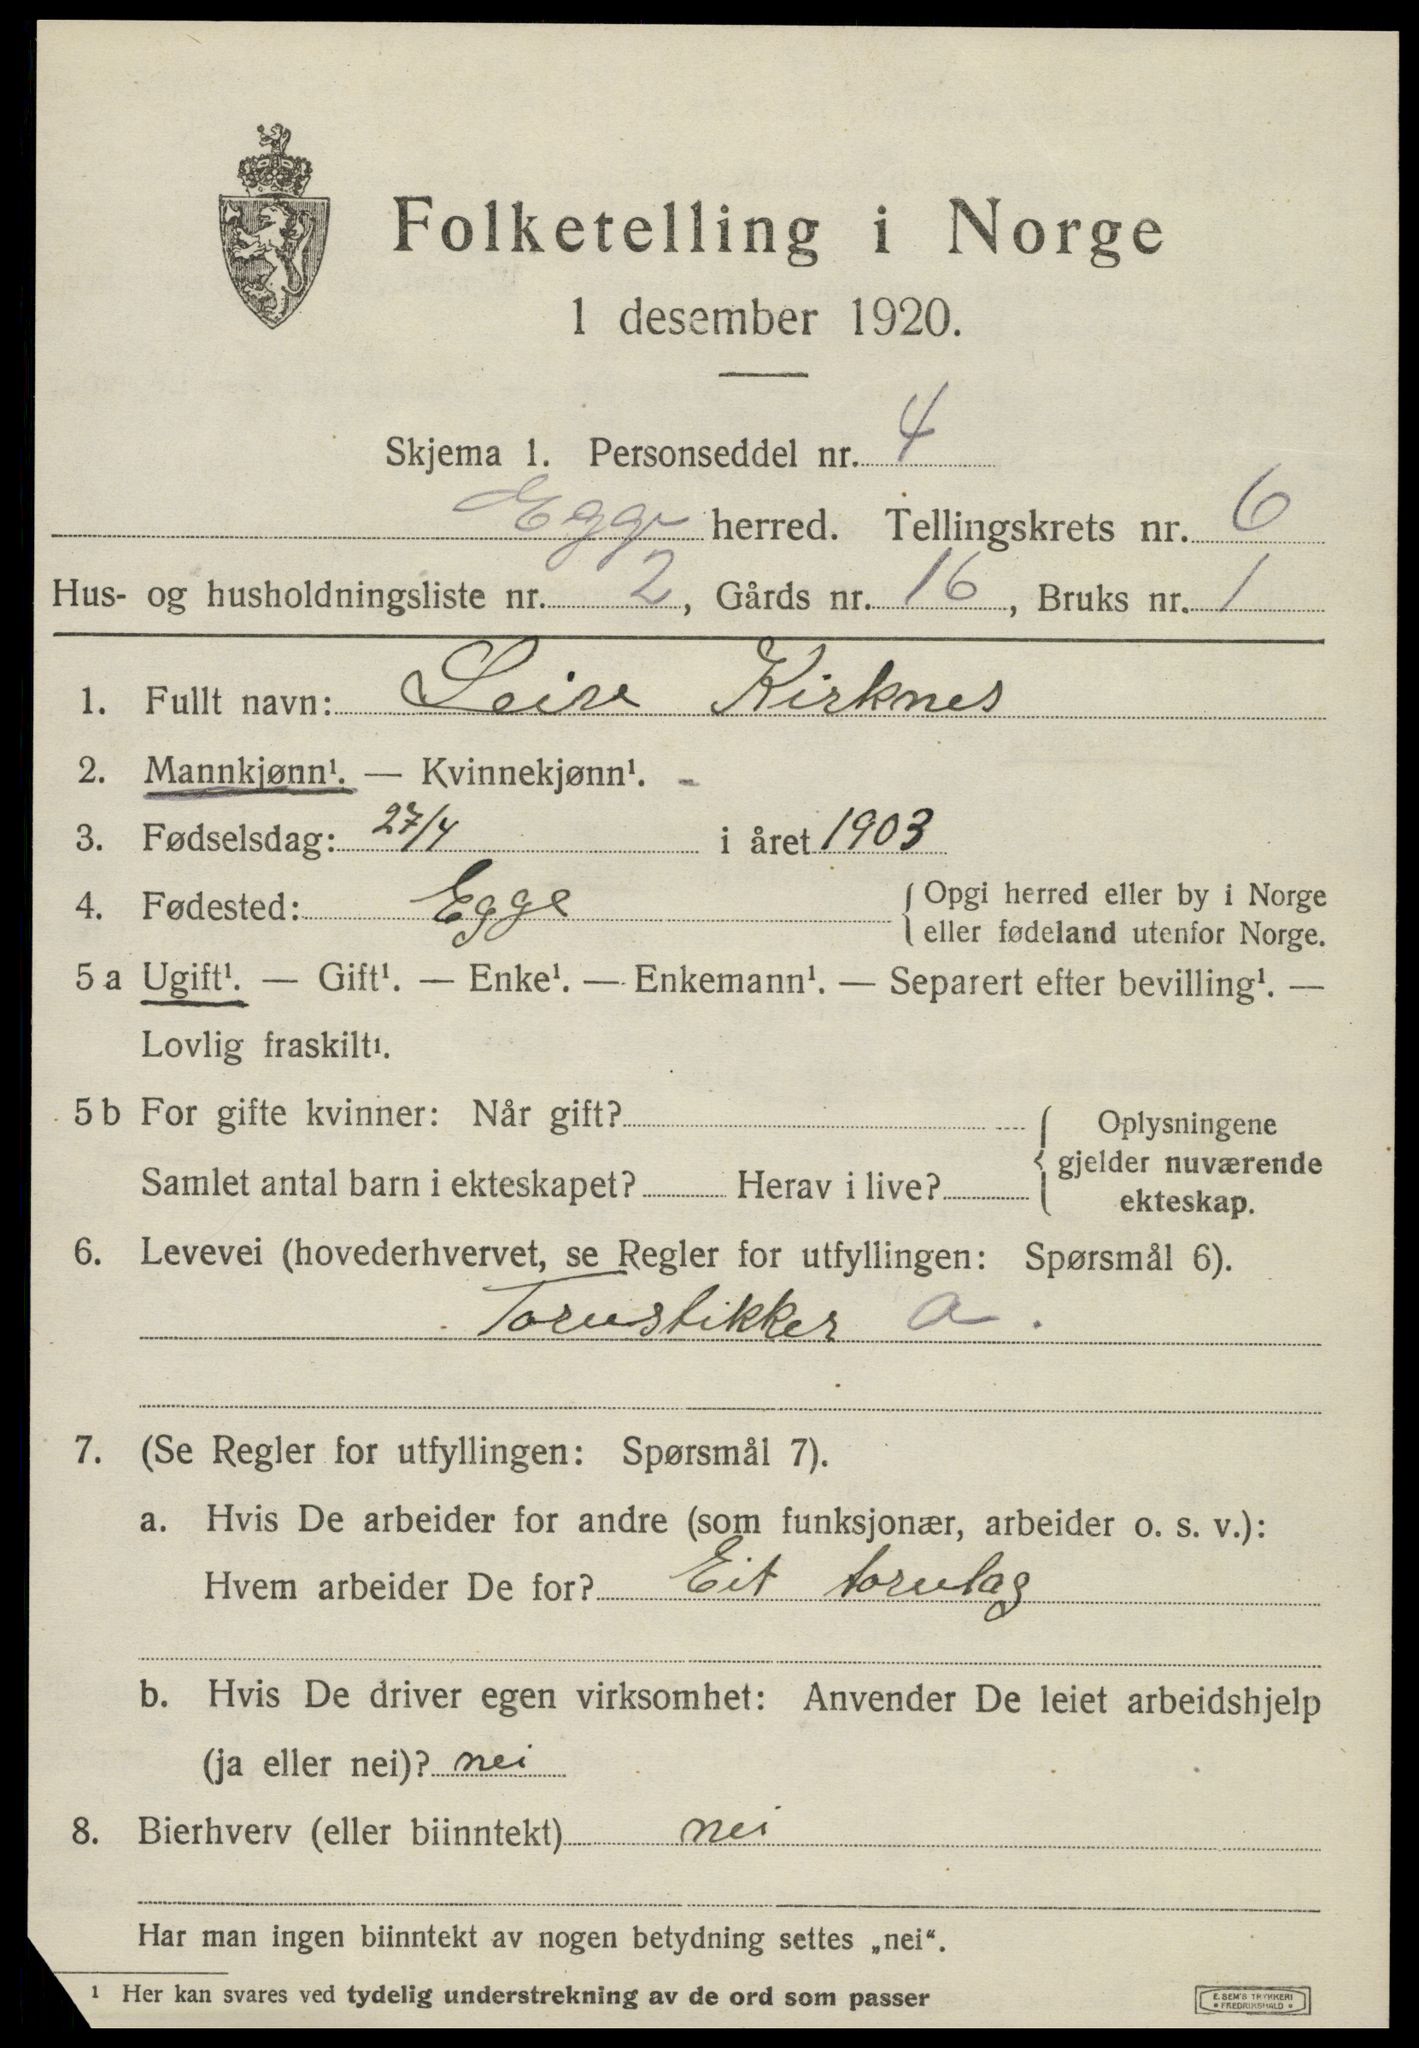 Folketelling i Norge
1 desember 1920.
Skjema 1. Personseddel nr. 4
Egge herred. Tellingskrets nr. 6
Hus- og husholdningsliste nr. 2, Gårds nr. 16, Bruks nr. 1
1. Fullt navn: Kirknes
2. Mannkjønn¹. — Kvinnekjønn¹. -
3. Fødselsdag: 27/4 i året 1903
4. Fødested: Egge { Opgi herred eller by i Norge
eller fødeland utenfor Norge.
5 a Ugift¹. — Gift¹. — Enke¹. — Enkemann¹. — Separert efter bevilling¹. —
Lovlig fraskilt¹.
5 b For gifte kvinner: Når gift? { Oplysningene
gjelder nuværende
Samlet antal barn i ekteskapet? Herav i live?
ekteskap.
6. Levevei (hovederhvervet, se Regler for utfyllingen: Spørsmål 6).
Torvstikker a.
7. (Se Regler for utfyllingen: Spørsmål 7).
a. Hvis De arbeider for andre (som funksjonær, arbeider o. s. v.):
Hvem arbeider De for? Eit torvlag
b. Hvis De driver egen virksomhet: Anvender De leiet arbeidshjelp
(ja eller nei)? nei
8. Bierhverv (eller biinntekt) nei
Har man ingen biinntekt av nogen betydning settes „nei“.
¹ Her kan svares ved tydelig understrekning av de ord som passer
E. SEM'S TRYKKERI
• FREDRIKSHALD •